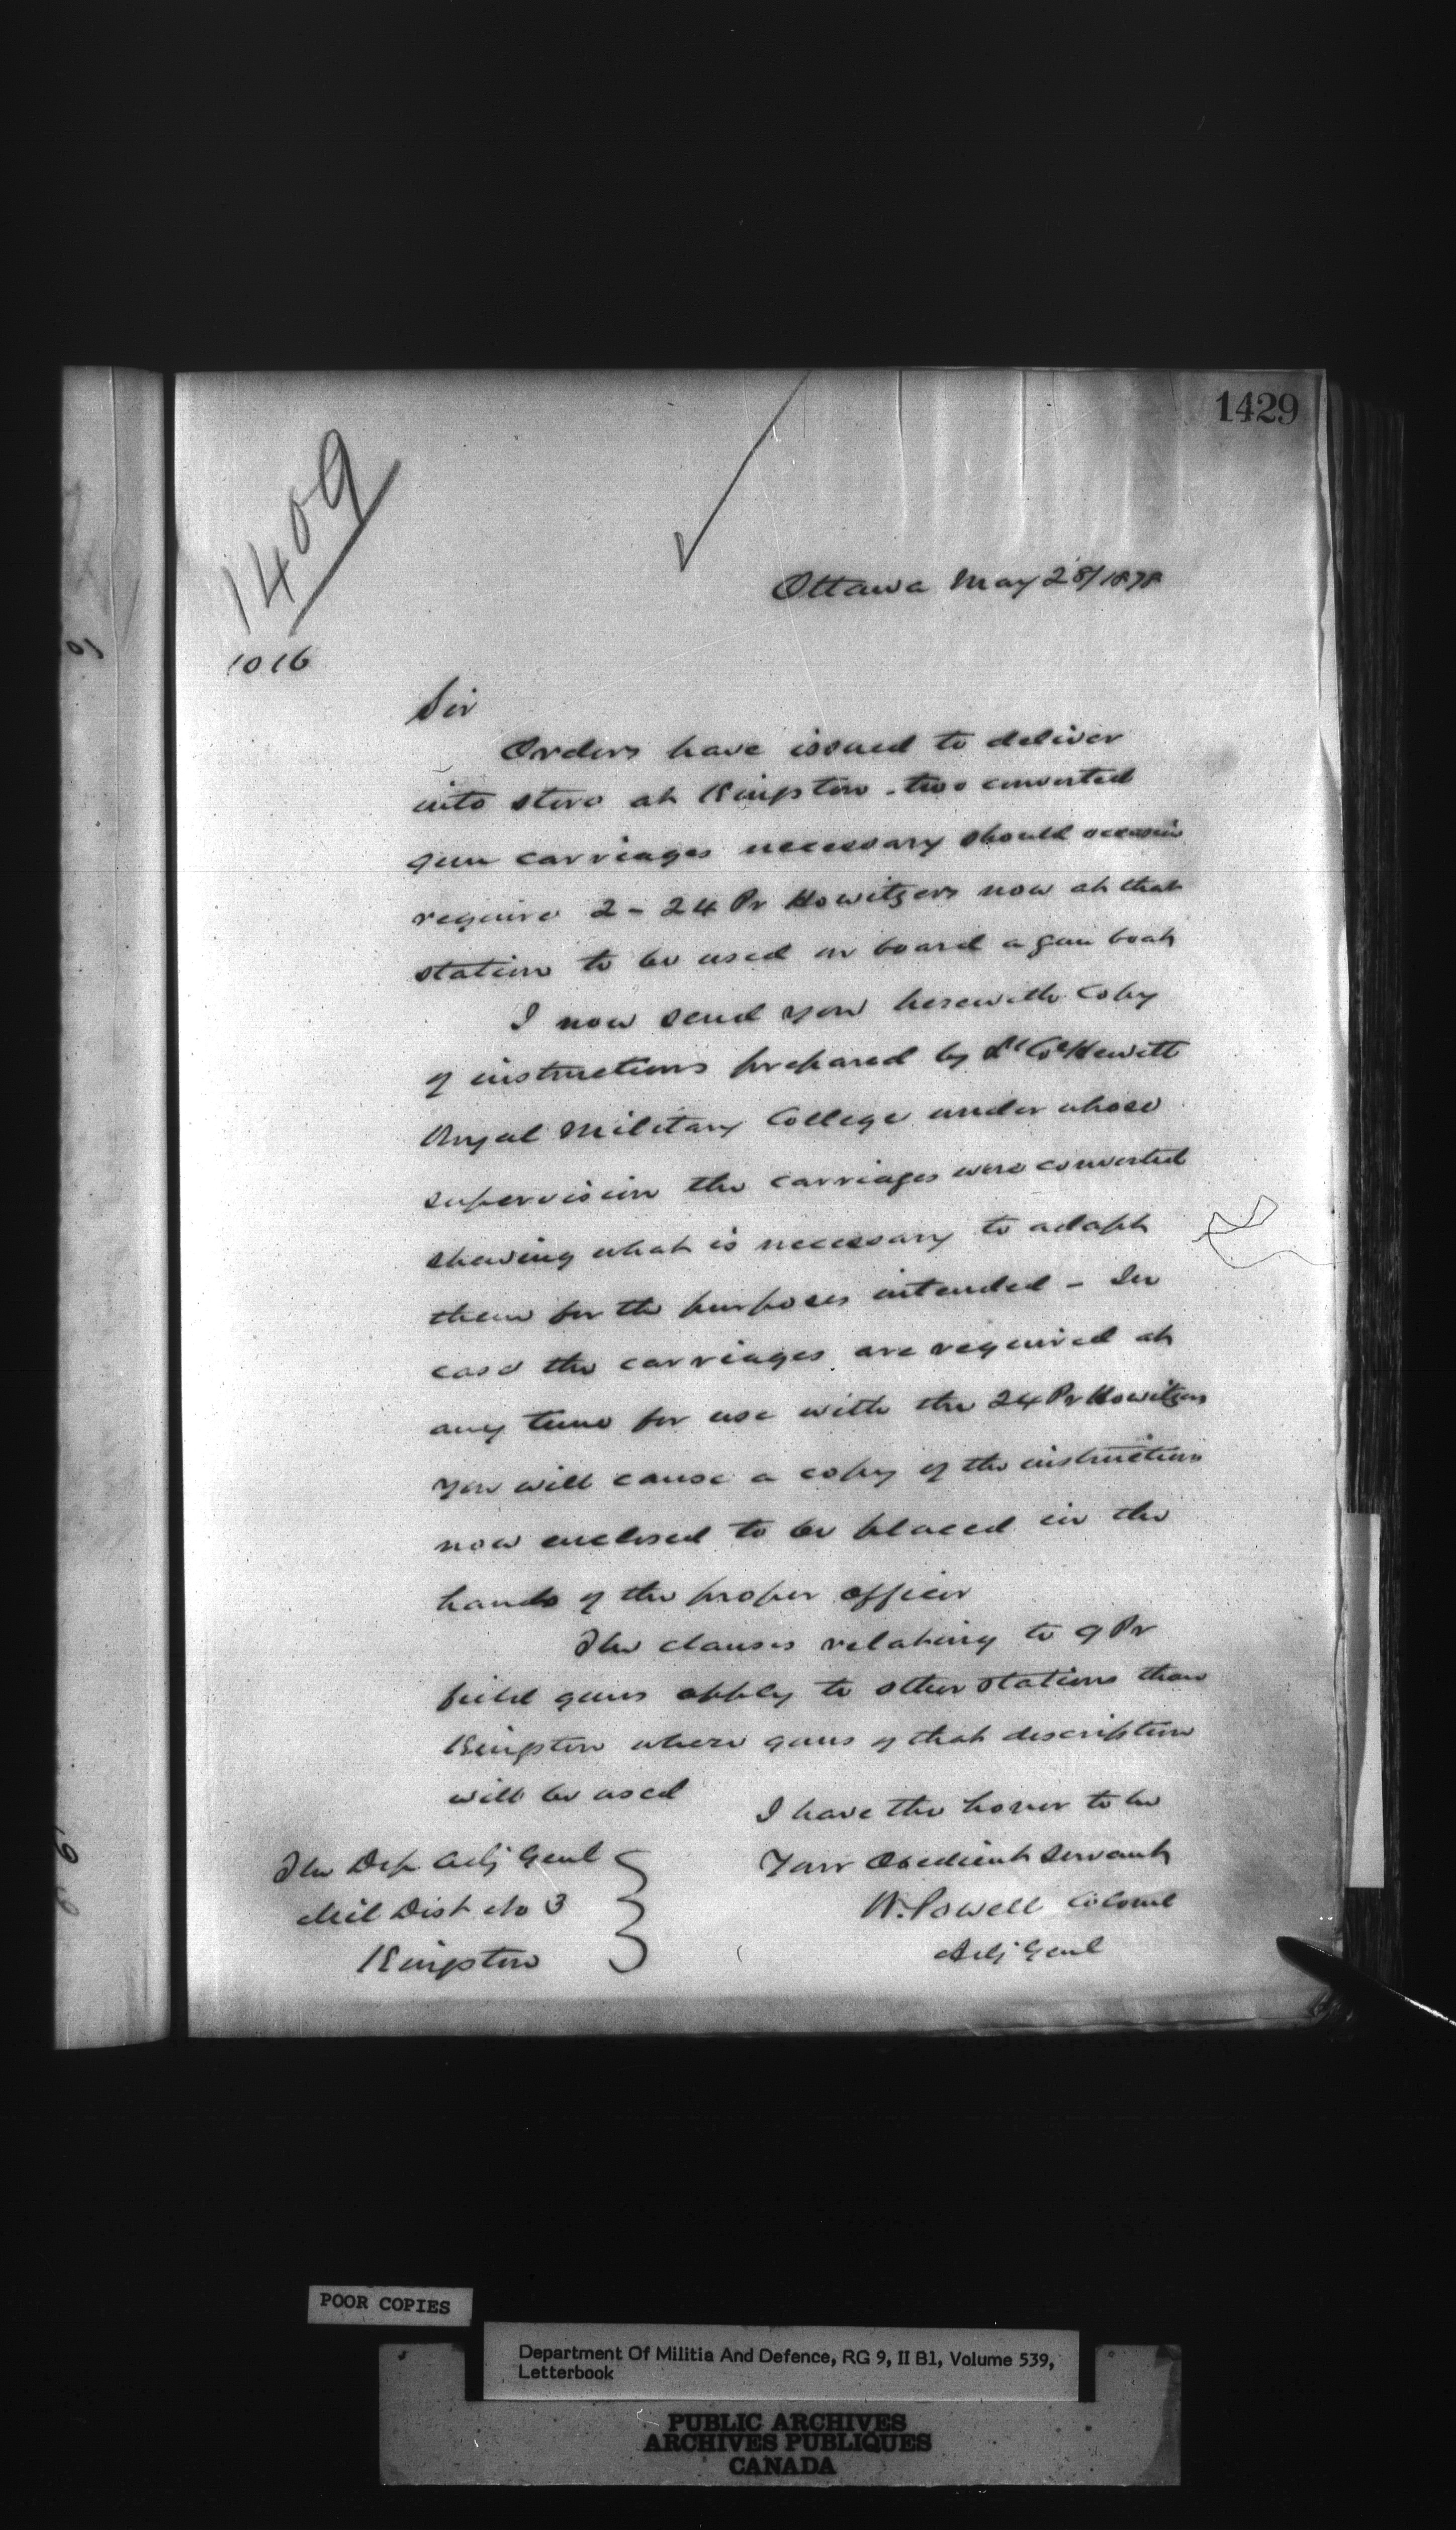 1429
1409
1016
Ottawa May 28/1878
Sir
Orders have issued to deliver
into store at Kingston - two converted
gun carriages necessary should occasion
require 2 - 24 Pr Howitzers now at that
station to be used on board a gun boat
I now send you herewith Copy
of instructions prepared by Lt Col Hewitt
Royal Military College under whose
supervision the carriages were converted
shewing what is necessary to adapt
them for the purposes intended - In
case the carriages are required at
any time for use with the 24 Pr Howitzers
you will cause a copy of the instructions
now enclosed to be placed in the
hands of the proper officer
The clauses relating to 9 Pr
field guns apply to other stations than
Kingston where guns of that description
will be used
I have the honor to be
Your Obedient Servant
W. Powell Colonel
Adj Genl
The Dep Adj Genl
Mil Dist No 3
Kingston
POOR COPIES
Department Of Militia And Defence, RG 9, II B1, Volume 539,
Letterbook
PUBLIC ARCHIVES
ARCHIVES PUBLIQUES
CANADA